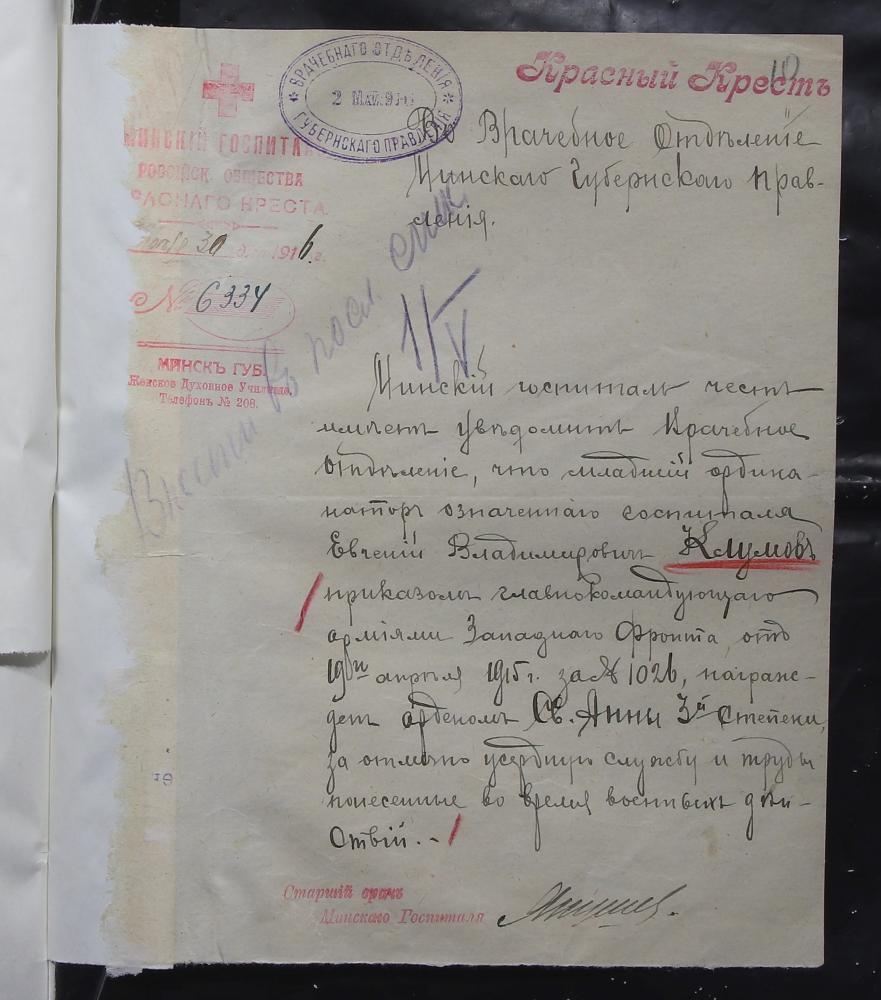 Красный Крестъ
10
ВРАЧЕБНАГО ОТДѢЛЕНІЯ
2 МАЙ 91
ГУБЕРНСКАГО ПРАВЛЕНІЯ
МИНСКІЙ ГОСПИТА
РОССІЙСК. ОБЩЕСТВА
АСНАГО КРЕСТА.
30 дня 1916 г.
№ 6334
МИНСКЪ ГУБ.
Женское Духовное Училище.
Телефонъ № 208.
Во Врачебное Отдѣленіе
Минскаго Губернскаго Прав-
ленія.
Внести въ посл. спис.
1/V
Минскій госпиталь честь
имѣетъ увѣдомить Врачебное
Отдѣленіе, что младшій орди
наторъ означеннаго госпиталя
Евгеній Владимировичъ Клумовъ
приказомъ главнокомандующаго
арміями Западнаго Фронта, отъ
19го апрѣля 1915 г. за № 1026, награж-
денъ орденомъ Св. Анны 3й степени,
за отлично усердную службу и труды
понесенные во время военныхъ дѣй-
ствій. -
Старшій врачъ
Минскаго Госпиталя